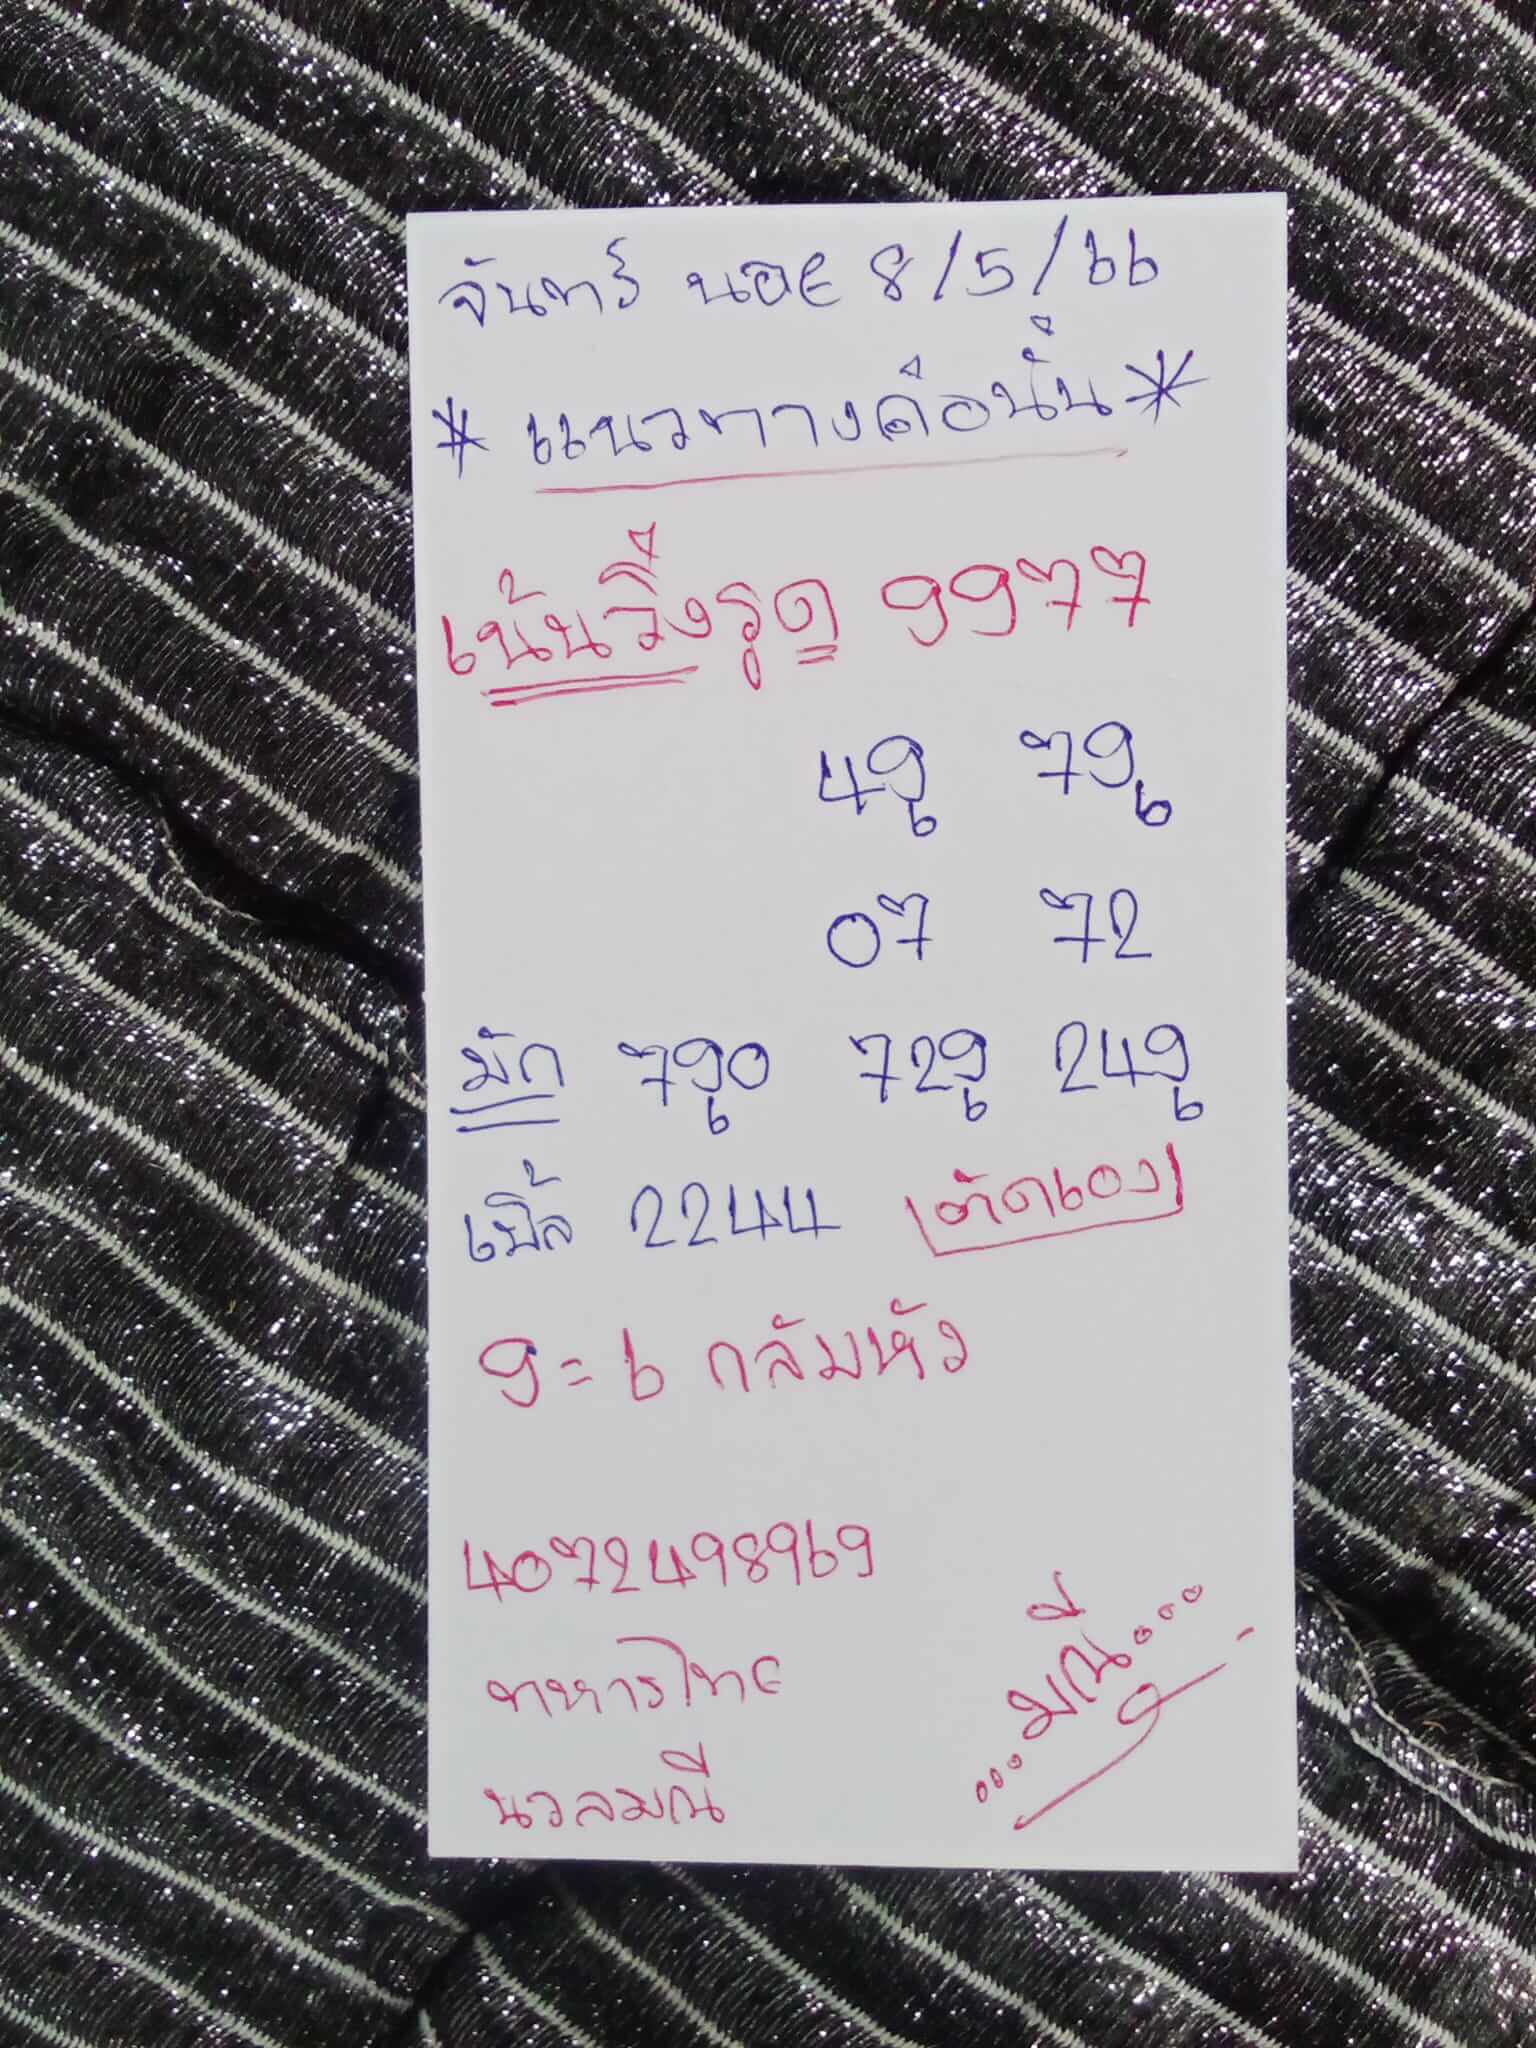 จันทร์ นอย 8/5/66
* แนวทางคือนั้น *
เน้นวิ่งรูด 9977
49 6 79 6
07 72
มัก 7906 7296 2496
เบิ้ล 2244 ตัดเอง
9=6 กลัมหัว
4072498969
ทหารไทย
นวลมณี
...มณี...